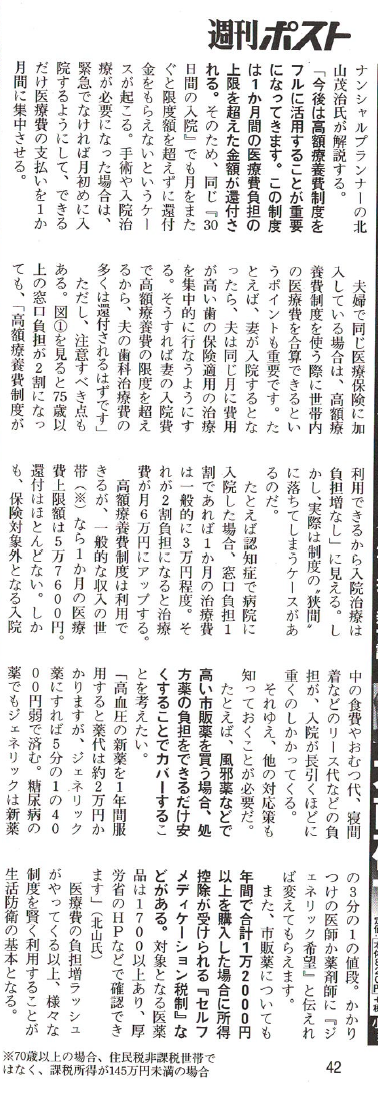 週刊ポスト
ナンシャルプランナーの北
山茂治氏が解説する。
「今後は高額療養費制度を
フルに活用することが重要
になってきます。この制度
は1か月間の医療費負担の
上限を超えた金額が還付さ
れる。そのため、同じ『30
日間の入院』でも月をまた
ぐと限度額を超えずに還付
金をもらえないというケー
スが起こる。手術や入院治
療が必要になった場合は、
緊急でなければ月初めに入
院するようにして、できる
だけ医療費の支払いを1か
月間に集中させる。
夫婦で同じ医療保険に加
入している場合は、高額療
養費制度を使う際に世帯内
の医療費を合算できるとい
うポイントも重要です。た
とえば、妻が入院するとな
ったら、夫は同じ月に費用
が高い歯の保険適用の治療
を集中的に行なうようにす
る。そうすれば妻の入院費
で高額療養費の限度を超え
るから、夫の歯科治療費の
多くは還付されるはずです」
ただし、注意すべき点も
ある。図①を見ると75歳以
上の窓口負担が2割になっ
ても、「高額療養費制度が
利用できるから入院治療は
負担増なし」に見える。し
かし、実際は制度の〝狭間〟
に落ちてしまうケースがあ
るのだ。
たとえば認知症で病院に
入院した場合、窓口負担1
割であれば1か月の治療費
は一般的に3万円程度。そ
れが2割負担になると治療
費が月6万円にアップする。
高額療養費制度は利用で
きるが、一般的な収入の世
帯(※)なら1か月の医療
費上限額は5万7600円。
還付はほとんどない。しか
も、保険対象外となる入院
中の食費やおむつ代、寝間
着などのリース代などの負
担が、入院が長引くほどに
重くのしかかってくる。
それゆえ、他の対応策も
知っておくことが必要だ。
たとえば、風邪薬などで
高い市販薬を買う場合、処
方薬の負担をできるだけ安
くすることでカバーするこ
とを考えたい。
「高血圧の新薬を1年間服
用すると薬代は約2万円か
かりますが、ジェネリック
薬にすれば5分の1の40
00円弱で済む。糖尿病の
薬でもジェネリックは新薬
の3分の1の値段。かかり
つけの医師か薬剤師に『ジ
ェネリック希望』と伝えれ
ば変えてもらえます。
また、市販薬についても
年間で合計1万2000円
以上を購入した場合に所得
控除が受けられる『セルフ
メディケーション税制』な
どがある。対象となる医薬
品は1700以上あり、厚
労省のHPなどで確認でき
ます」(北山氏)
医療費の負担増ラッシュ
がやってくる以上、様々な
制度を賢く利用することが
生活防衛の基本となる。
※70歳以上の場合、住民税非課税世帯で
はなく、課税所得が145万円未満の場合
42